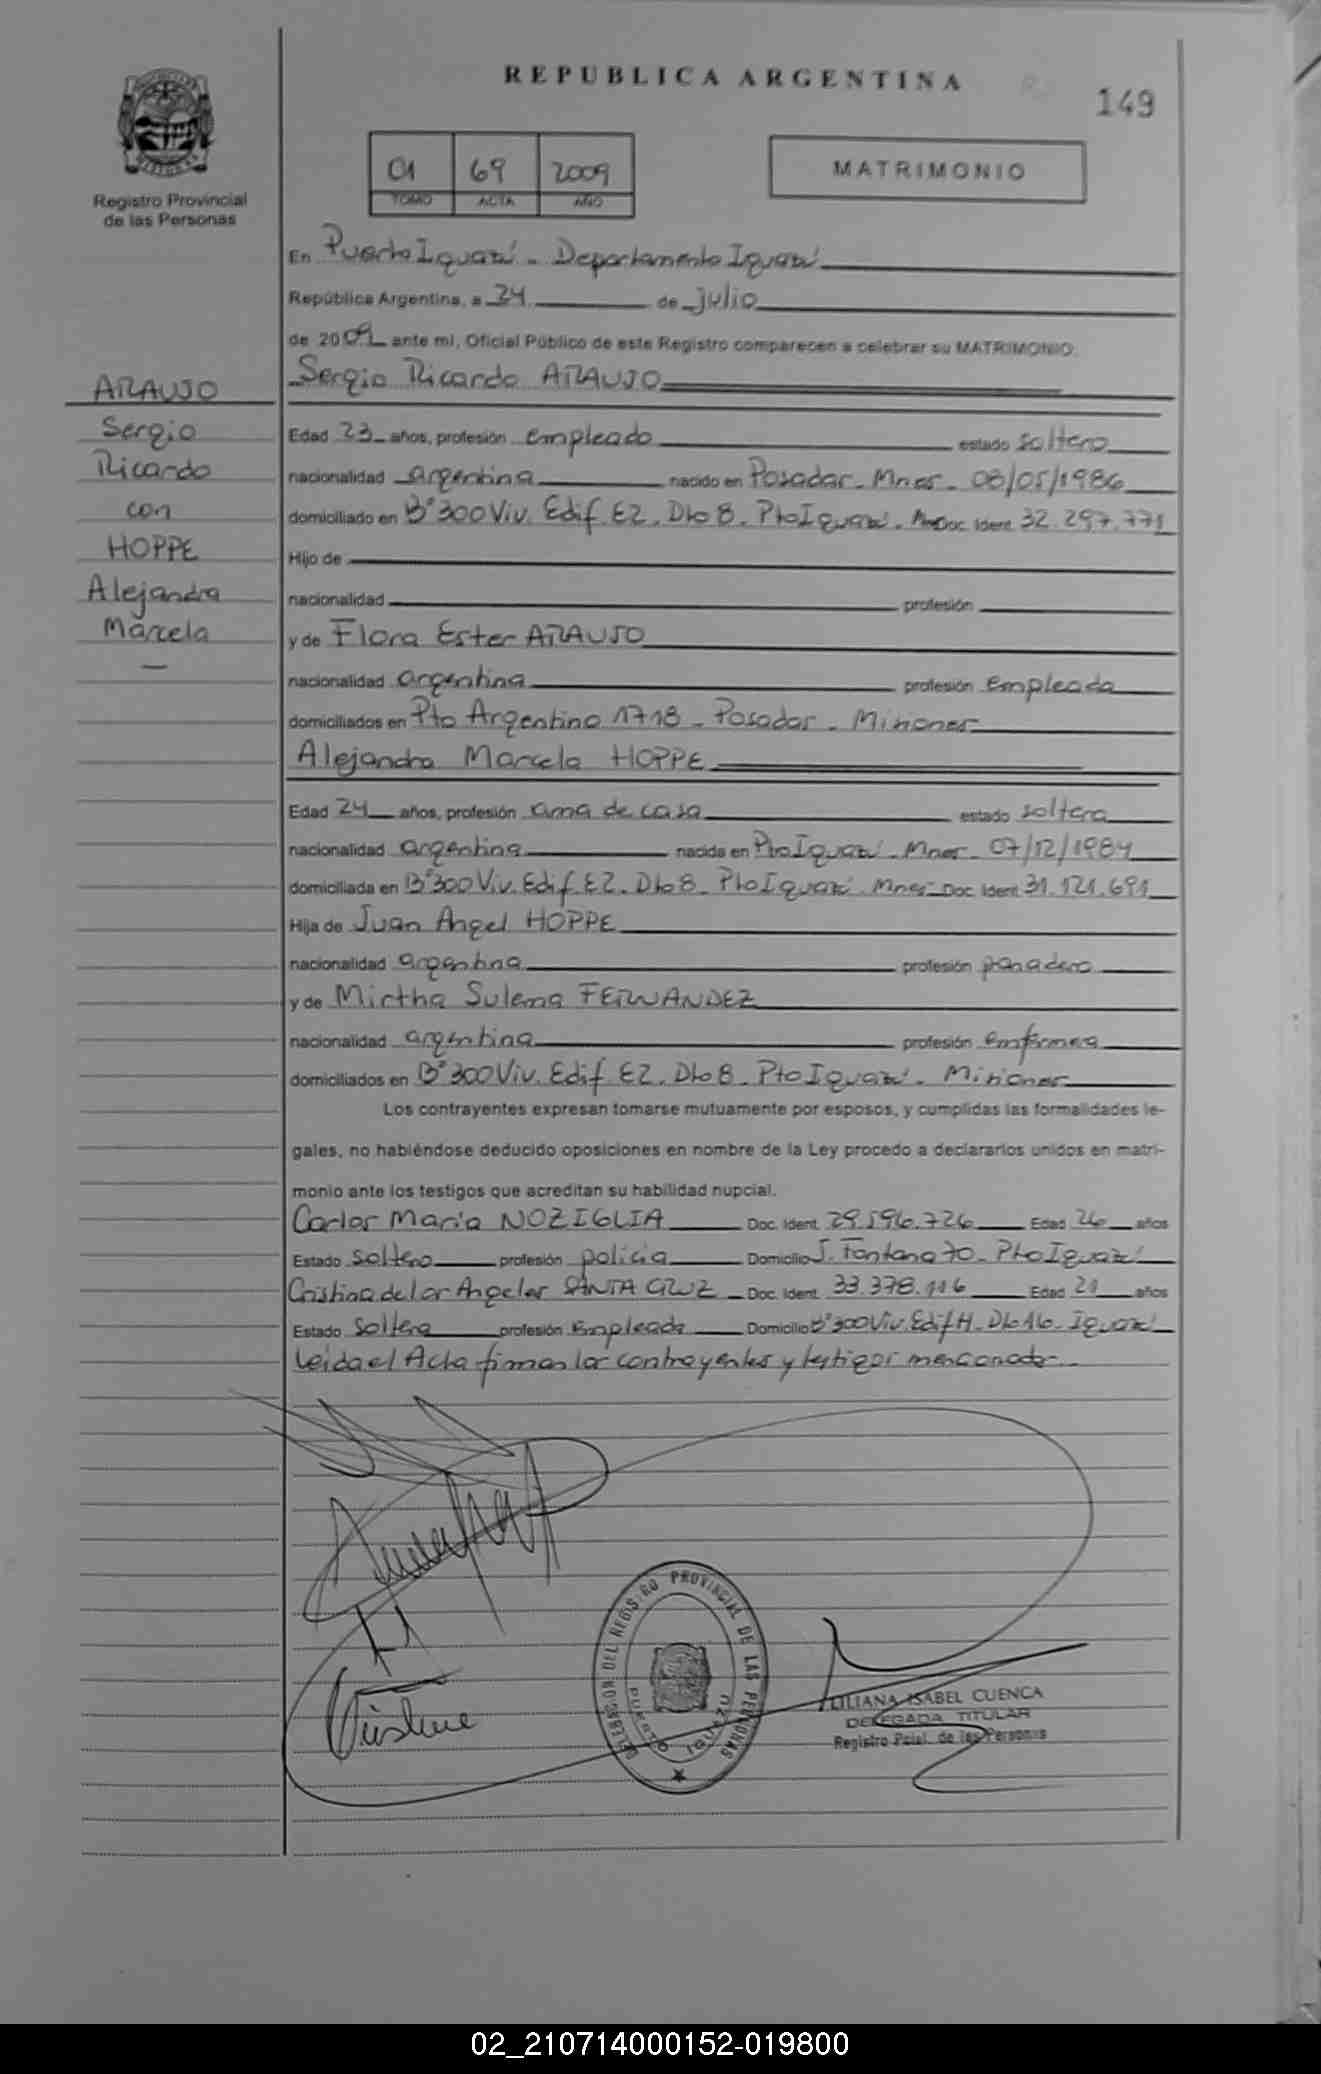 REPUBLICA ARGENTINA
149
Registro Provincial
de las Personas
01 69 2009
TOMO ACTA AÑO
MATRIMONIO
ARAUJO
Sergio
Ricardo
con
HOPPE
Alejandra
Marcela
En Puerto Iguazú - Departamento Iguazú
República Argentina, a 24 de julio
de 2009 ante mí, Oficial Público de este Registro comparecen a celebrar su MATRIMONIO:
Sergio Ricardo ARAUJO
Edad 23 años, profesión empleado estado soltero
nacionalidad argentina nacido en Posadas - Mnes - 08/05/1986
domiciliado en B° 300 Viv. Edif. E2. Dto 8. Pto Iguazú. Doc. Ident. 32.297.771
Hijo de
nacionalidad profesión
y de Flora Ester ARAUJO
nacionalidad argentina profesión empleada
domiciliados en Pto Argentino 1718 - Posadas - Misiones
Alejandra Marcela HOPPE
Edad 24 años, profesión ama de casa estado soltera
nacionalidad argentina nacida en Pto Iguazú - Mnes - 07/12/1984
domiciliada en B° 300 Viv. Edif. E2. Dto 8. Pto Iguazú. Mnes - Doc. Ident. 31.121.691
Hija de Juan Angel HOPPE
nacionalidad argentina profesión panadero
y de Mirtha Sulema FERNANDEZ
nacionalidad argentina profesión enfermera
domiciliados en B° 300 Viv. Edif. E2. Dto 8. Pto Iguazú. Misiones
Los contrayentes expresan tomarse mutuamente por esposos, y cumplidas las formalidades le-
gales, no habiéndose deducido oposiciones en nombre de la Ley procedo a declararlos unidos en matri-
monio ante los testigos que acreditan su habilidad nupcial.
Carlos María NOZIGLIA Doc. Ident. 29.596.726 Edad 26 años
Estado soltero profesión policía Domicilio J. Fontana 70 - Pto Iguazú
Cristina de los Angeles SANTA CRUZ - Doc. Ident. 33.378.116 Edad 21 años
Estado soltera profesión empleada Domicilio B° 300 Viv. Edif H. Dto 16. Iguazú
Leida el Acta firman los contrayentes y testigos mencionados
DELEGACION DEL REGISTRO PROVINCIAL DE LAS PERSONAS
PUERTO IGUAZU
LILIANA ISABEL CUENCA
DELEGADA TITULAR
Registro Pcial. de las Personas
02_210714000152-019800